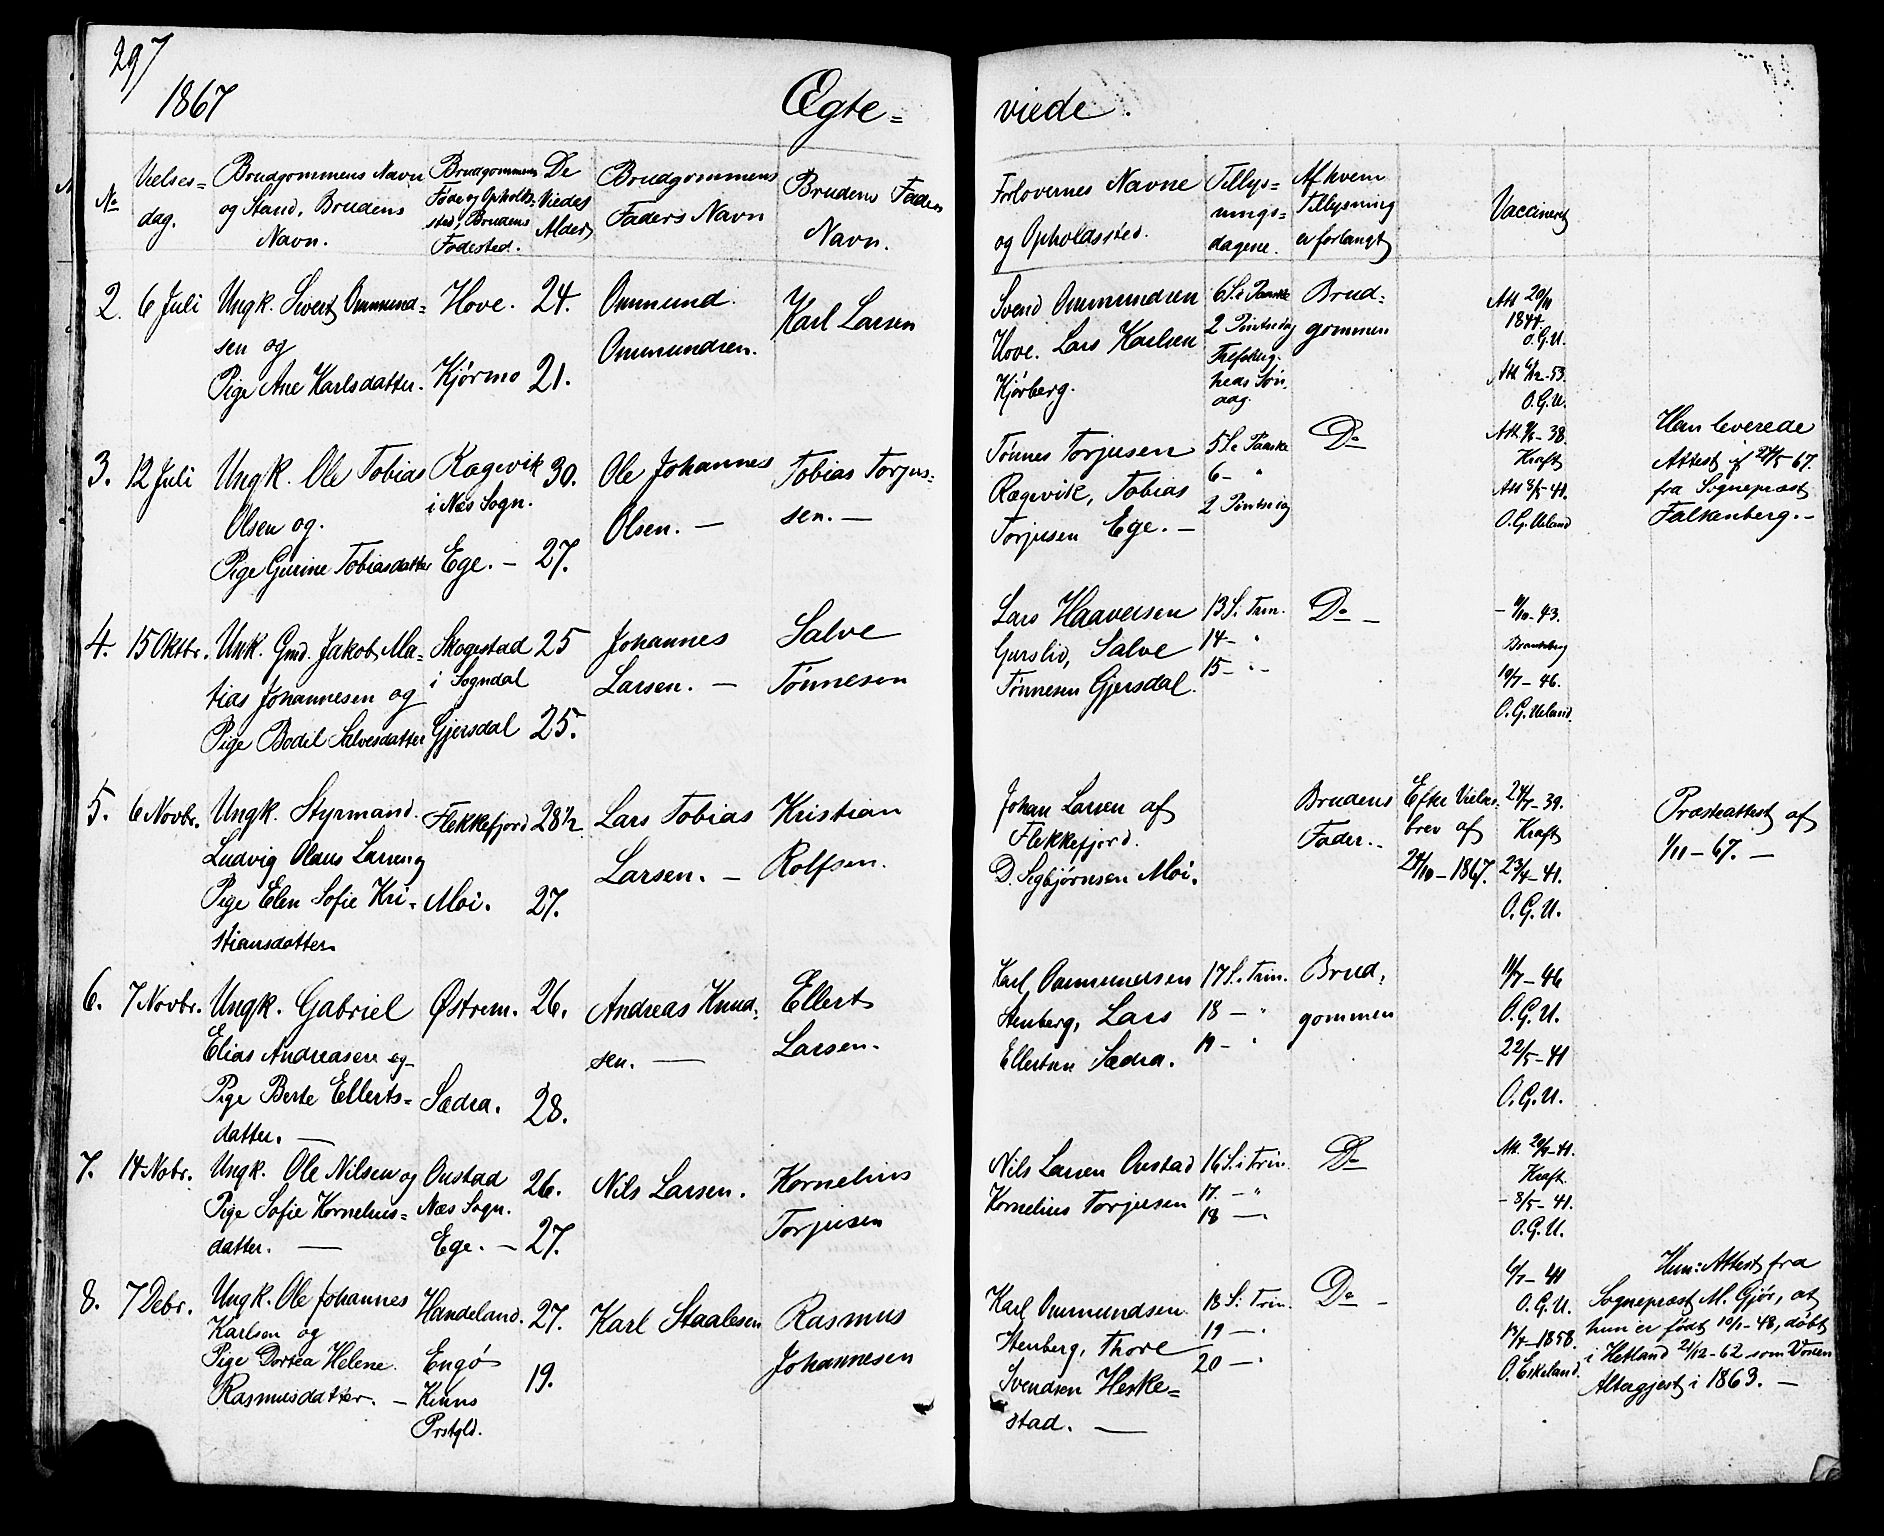 297
1867
Ægte=
viede.
No
Vielses=
dag.
Brudgommens Navn
og Stand, Brudens
Navn.
Brudgommens
Føde og Opholds=
sted, Brudens
Fødested.
De
Viedes
Alder
Brudgommens
Faders Navn
Brudens Faders
Navn.
Forlovernes Navne
og Opholdssted.
Tillys=
nings=
dagene.
Af hvem
Tillysning
er forlangt
Vaccineret
2. 6 Juli
Ungk. Sivert Ommund=
sen og
Pige Ane Karlsdatter.
Hove.
Kjørmo
24.
21.
Ommund
Ommundsen.
Karl Larsen
Svend Ommundsen
Hove. Lars Karlsen
Kjørberg.
6 S. e Paaske
2 Pintsedag
Trefoldig=
heds Søn
dag.
Brud=
gommen
Att 20/11
1844
O.G.U.
Att 6/12-53.
O.G.U.
3. 12 Juli
Ungk. Ole Tobias
Olsen og
Pige Gurine Tobiasdatter
Rægevik
i Næs Sogn.
Ege. -
30.
27.
Ole Johannes
Olsen. -
Tobias Torjus=
sen. -
Tønnes Torjusen
Rægevik, Tobias
Torjusen Ege. -
5 S. e Paaske
6 - "
2 Pintsedag
Do
38.
Kraft
Att 3/5-41.
O.G. Ueland
Han leverede
Attest af 27/5 67.
fra Sogneprest
Falkenberg. -
4. 15 Oktbr.
Ungk. Gmd. Jakob Ma=
tias Johannesen og
Pige Bodil Salvesdatter
Skogestad
i Sogndal
Gjersdal
25
25.
Johannes
Larsen. -
Salve
Tønnesen
Lars Haaversen
Gurslid, Salve
Tønnesen Gjersdal.
13 S. Trin.
14 - "
15 - " -
Do -
43.
10/7-46.
O.G. Ueland
5. 6 Novbr.
Ungk. Styrmand
Ludvig Olaus Larsen og
Pige Elen Sofie Kri=
stiansdatter
Flekkefjord
Moi.
28 1/2
27.
Lars Tobias
Larsen. -
Kristian
Rolfsen.
Johan Larsen af
Flekkefjord.
D. Sigbjørnsen Moi.
Brudens
Fader. -
Efter Vielses
brev af
24/10-1867.
24/7-39.
Kraft
23/4-41.
O.G.U.
Præsteattest af
1/11-67. -
6. 7 Novbr.
Ungk. Gabriel
Elias Andreasen og
Pige Berte Ellerts=
datter. -
Østrem.
Sædra.
26.
28.
Andreas Knud=
sen. -
Ellert
Larsen.
Karl Ommundsen
Stenberg, Lars
Ellertsen Sædra.
17 S. Trin.
18 - "
19 - "
Brud=
gommen
11/7-46
O.G.U.
22/5-41
O.G.U.
7. 14 Nobr.
Ungk. Ole Nilsen og
Pige Sofie Kornelius=
datter. -
Onstad
Næs Sogn.
Ege. -
26.
27.
Nils Larsen.
Kornelius
Torjusen
Nils Larsen Onstad
Kornelius Torjusen
16 S. i Trin.
17. - "
18 - "
Do
Att. 20/9-41.
Kraft
- 3/5-41.
O.G.U.
8. 7 Debr.
Ungk. Ole Johannes
Karlsen og
Pige Dortea Helene
Rasmusdatter. -
Handeland.
Engø
Kinns
Prstgld.
27.
19.
Karl Staalesen
Rasmus
Johannesen
Karl Ommundsen
Stenberg, Thore
Svendsen Heske=
stad. -
18 S. Trin.
19 - "
20 - "
Do -
6/7-41
O.G.U.
14/4-1858.
O. Eskeland
Hun: Attest fra
Sogneprest M. Gjør, at
hun er født 10/1-48, døbt
i Hetland 21/12-62 som Voxen
Altergjest i 1863. -